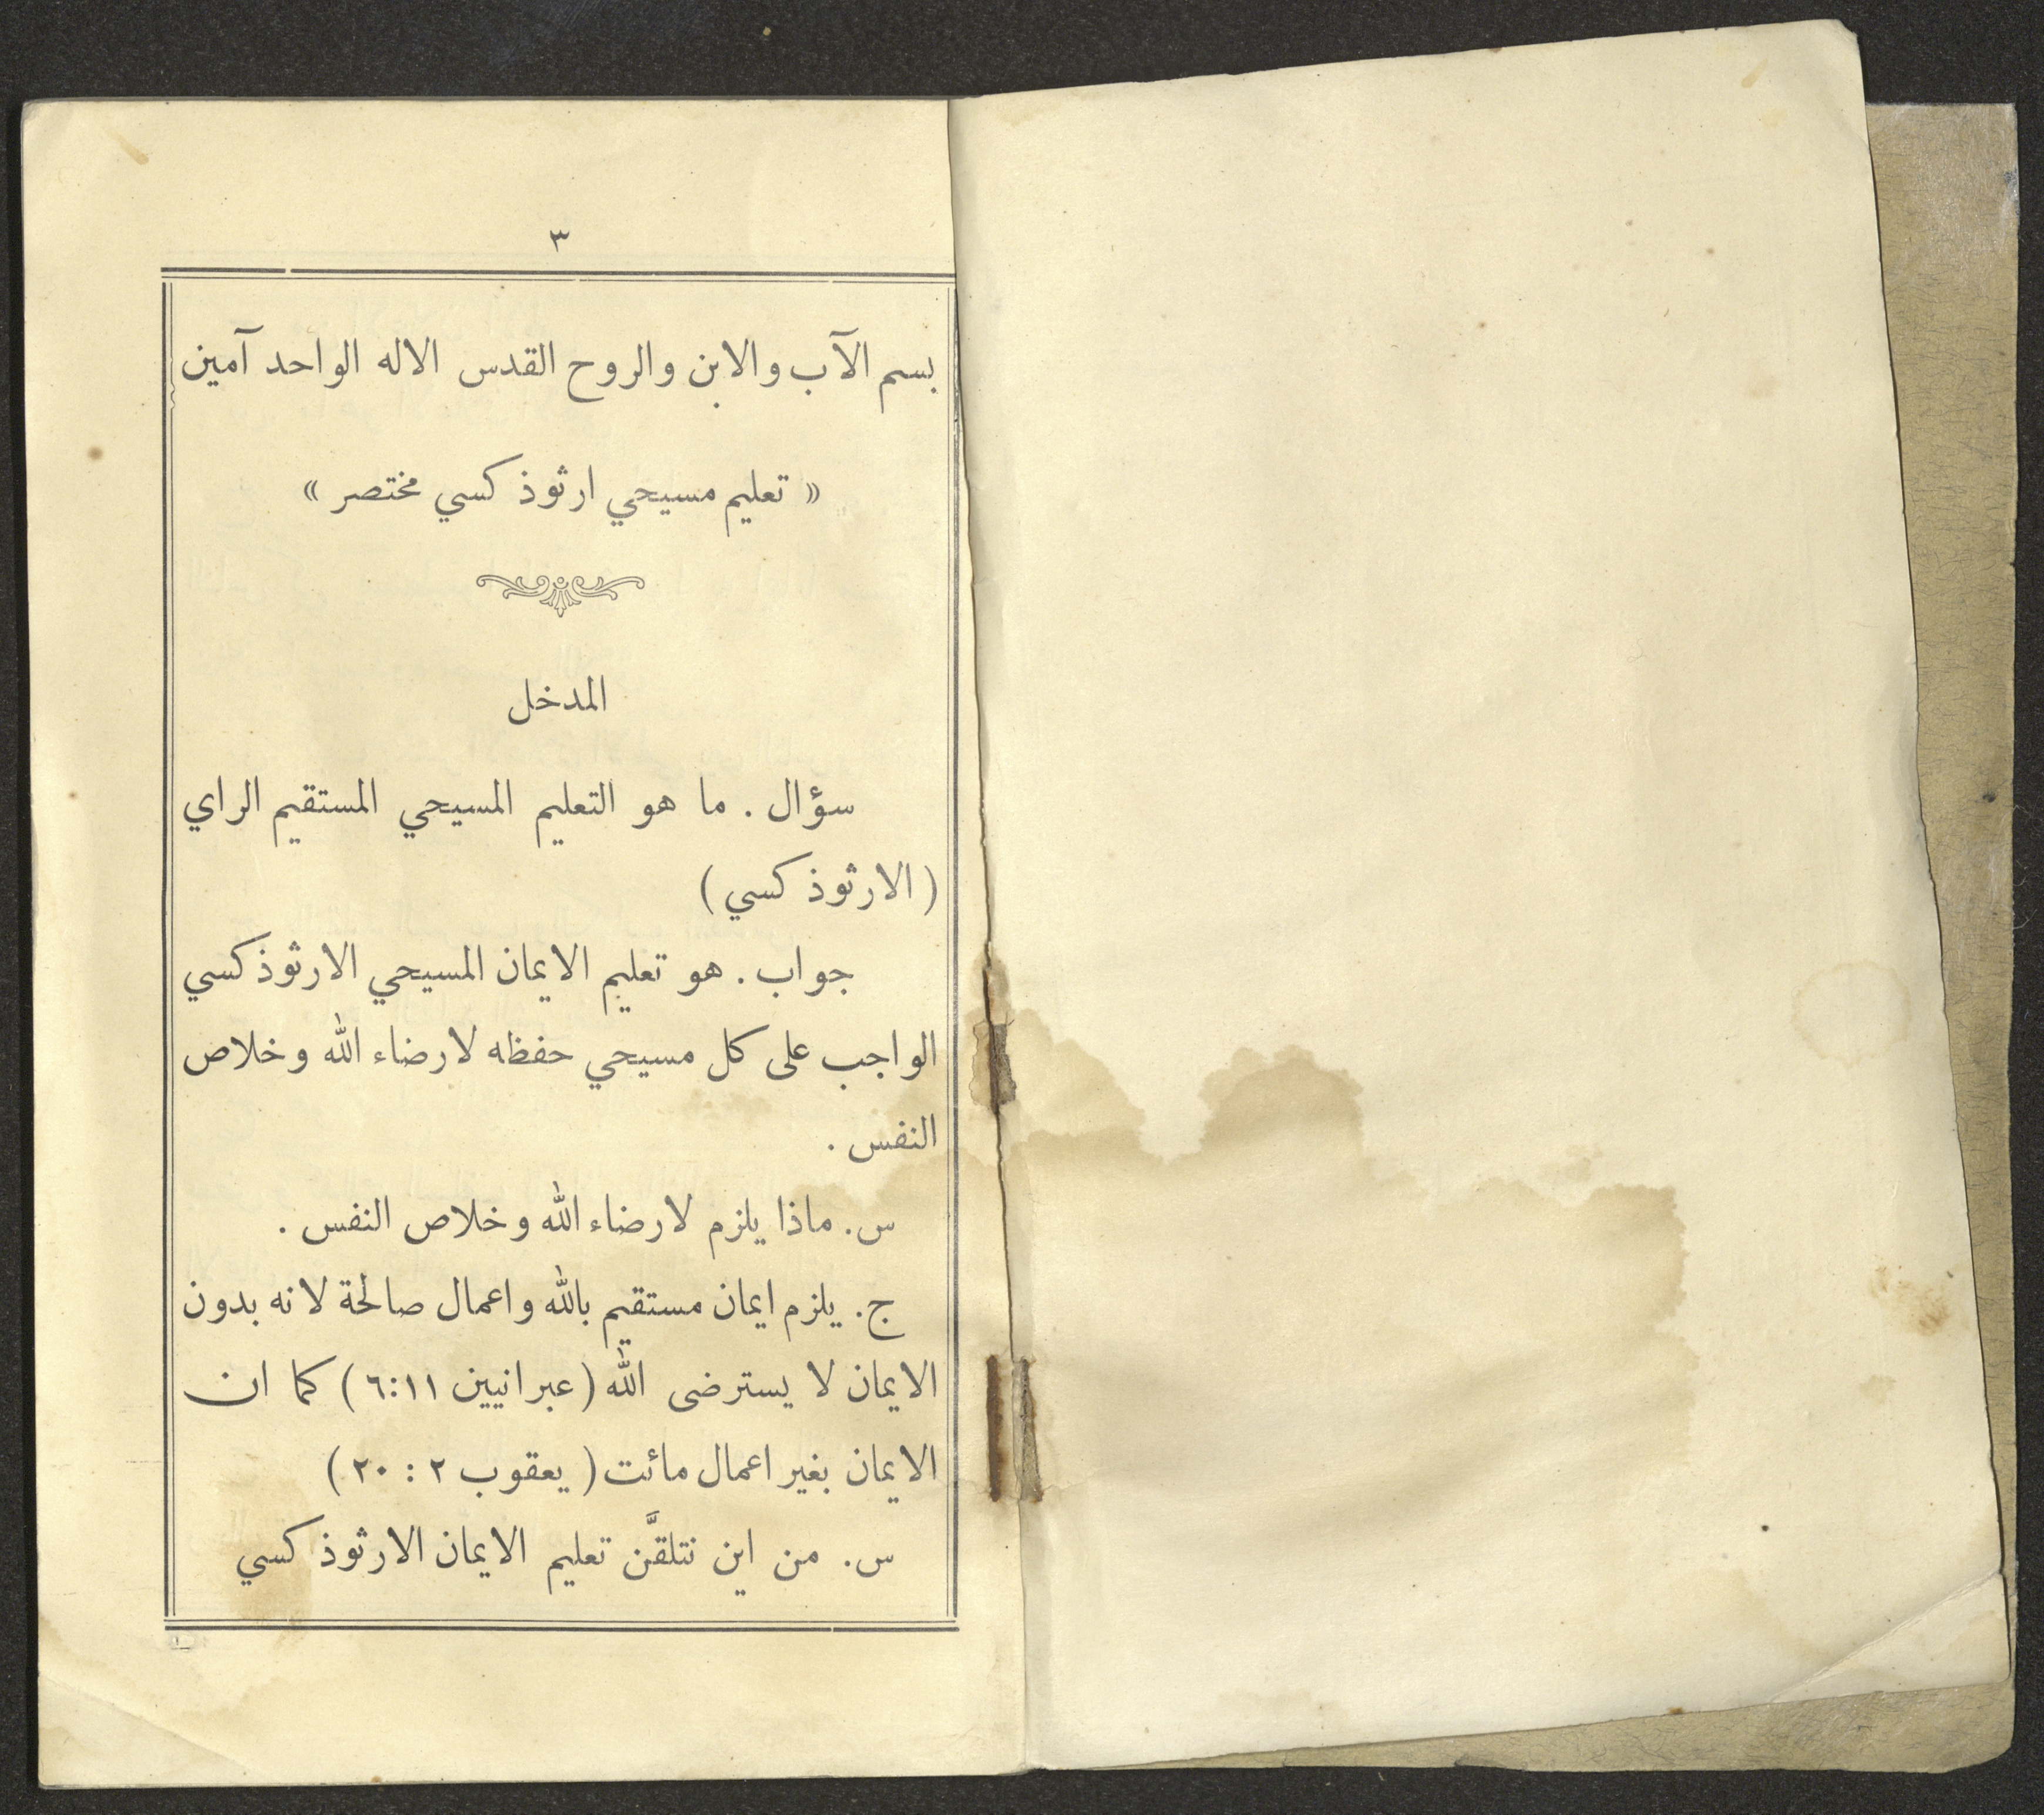 ٣
بسم الآب والابن والروح القدس الاله الواحد آمين
« تعليم مسيحي ارثوذكسي مختصر »
المدخل
سؤال . ما هو التعليم المسيحي المستقيم الراي
( الارثوذكسي )
جواب . هو تعليم الايمان المسيحي الارثوذكسي
الواجب على كل مسيحي حفظه لارضاء الله وخلاص
النفس .
س. ماذا يلزم لارضاء الله وخلاص النفس .
ج. يلزم ايمان مستقيم بالله واعمال صالحة لانه بدون
الايمان لا يسترضى الله ( عبرانيين ٦:١١ ) كما ان
الايمان بغير اعمال مائت ( يعقوب ٢ : ٢٠ )
س. من اين نتلقَّن تعليم الايمان الارثوذكسي
١